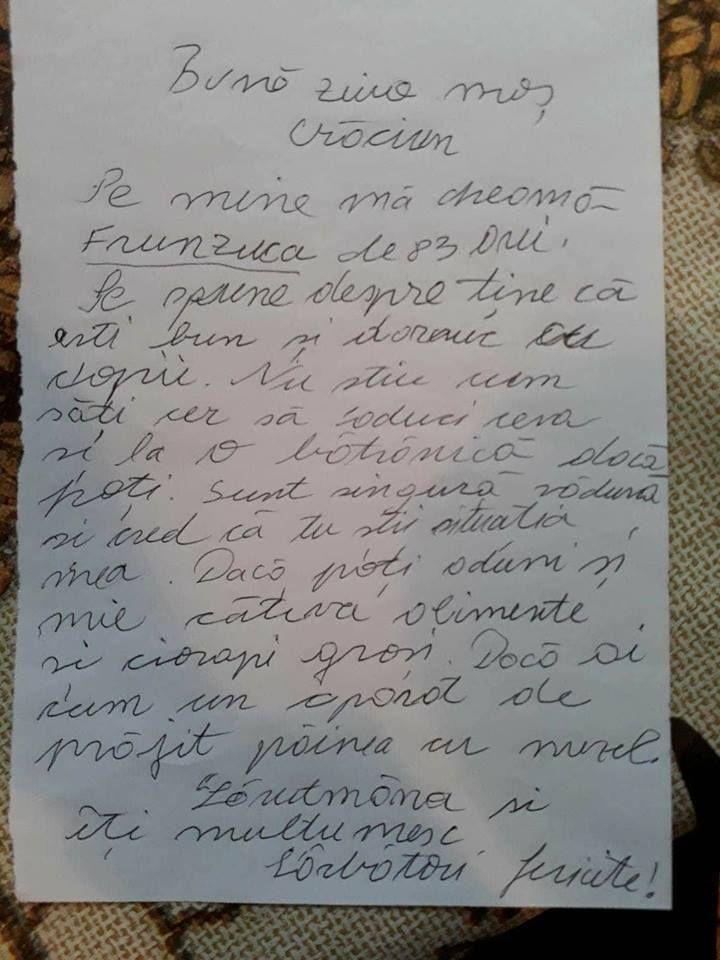 Bună ziua moș
Crăciun
Pe mine mă cheamă
Frunzuca de 83 ani.
Se spune despre tine că
esti bun și darnic cu
copii. Nu stiu cum
săți cer să aduci ceva
si la o bătrânică dacă
poți. Sunt singură văduvă
si cred că tu stii situatia
mea. Dacă poți aduni și
mie câteva alimente
si ciorapi groși. Dacă ai
cum un aparat de
prăjit pâinea cu
Sărutmâna si
iți multumesc
Sărbători fericite!